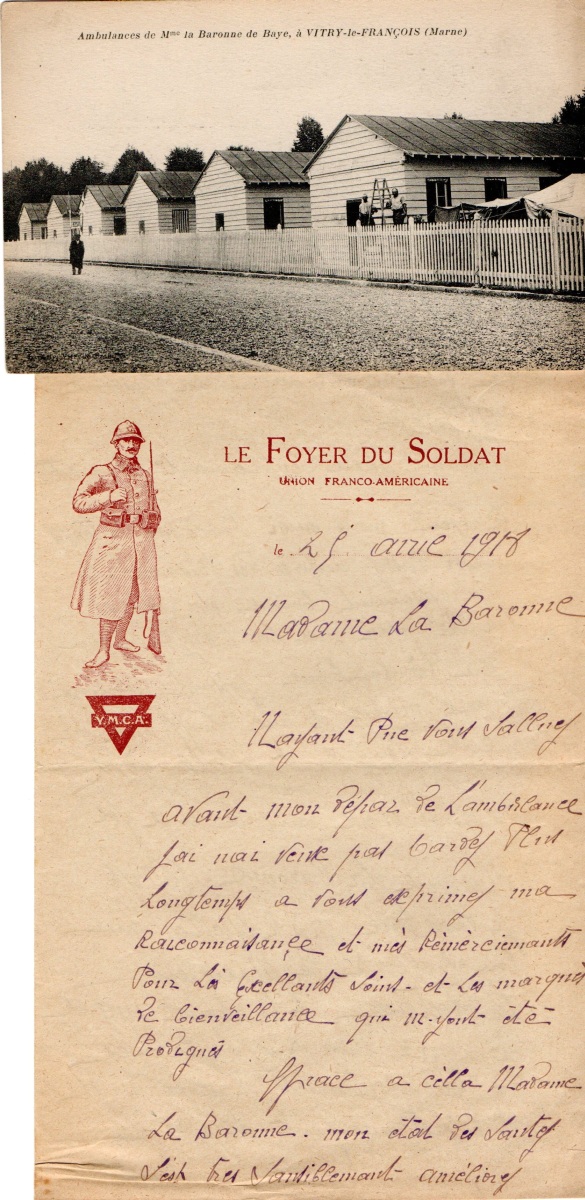 Ambulances de Mme la Baronne de Baye, à VITRY-le-FRANÇOIS (Marne)
LE FOYER DU SOLDAT
UNION FRANCO-AMÉRICAINE
le 25 avril 1918
Madame La Baronne
Y.M.C.A.
Nayant Pue Vous Salluez
avant mon dépar de L'ambulance
jai nai veux pas tardez Plus
Longtemps a vous exprimez ma
Raiconnaisançe et mès Rémèrciemants
Pour Lès Excellants Soint - et Les marquès
de bienveillance qui m-yont été
Prodiguès
Grace a cèlla Madame
La Baronne - mon état des Santez
S'est tres Sansiblemant améliorez